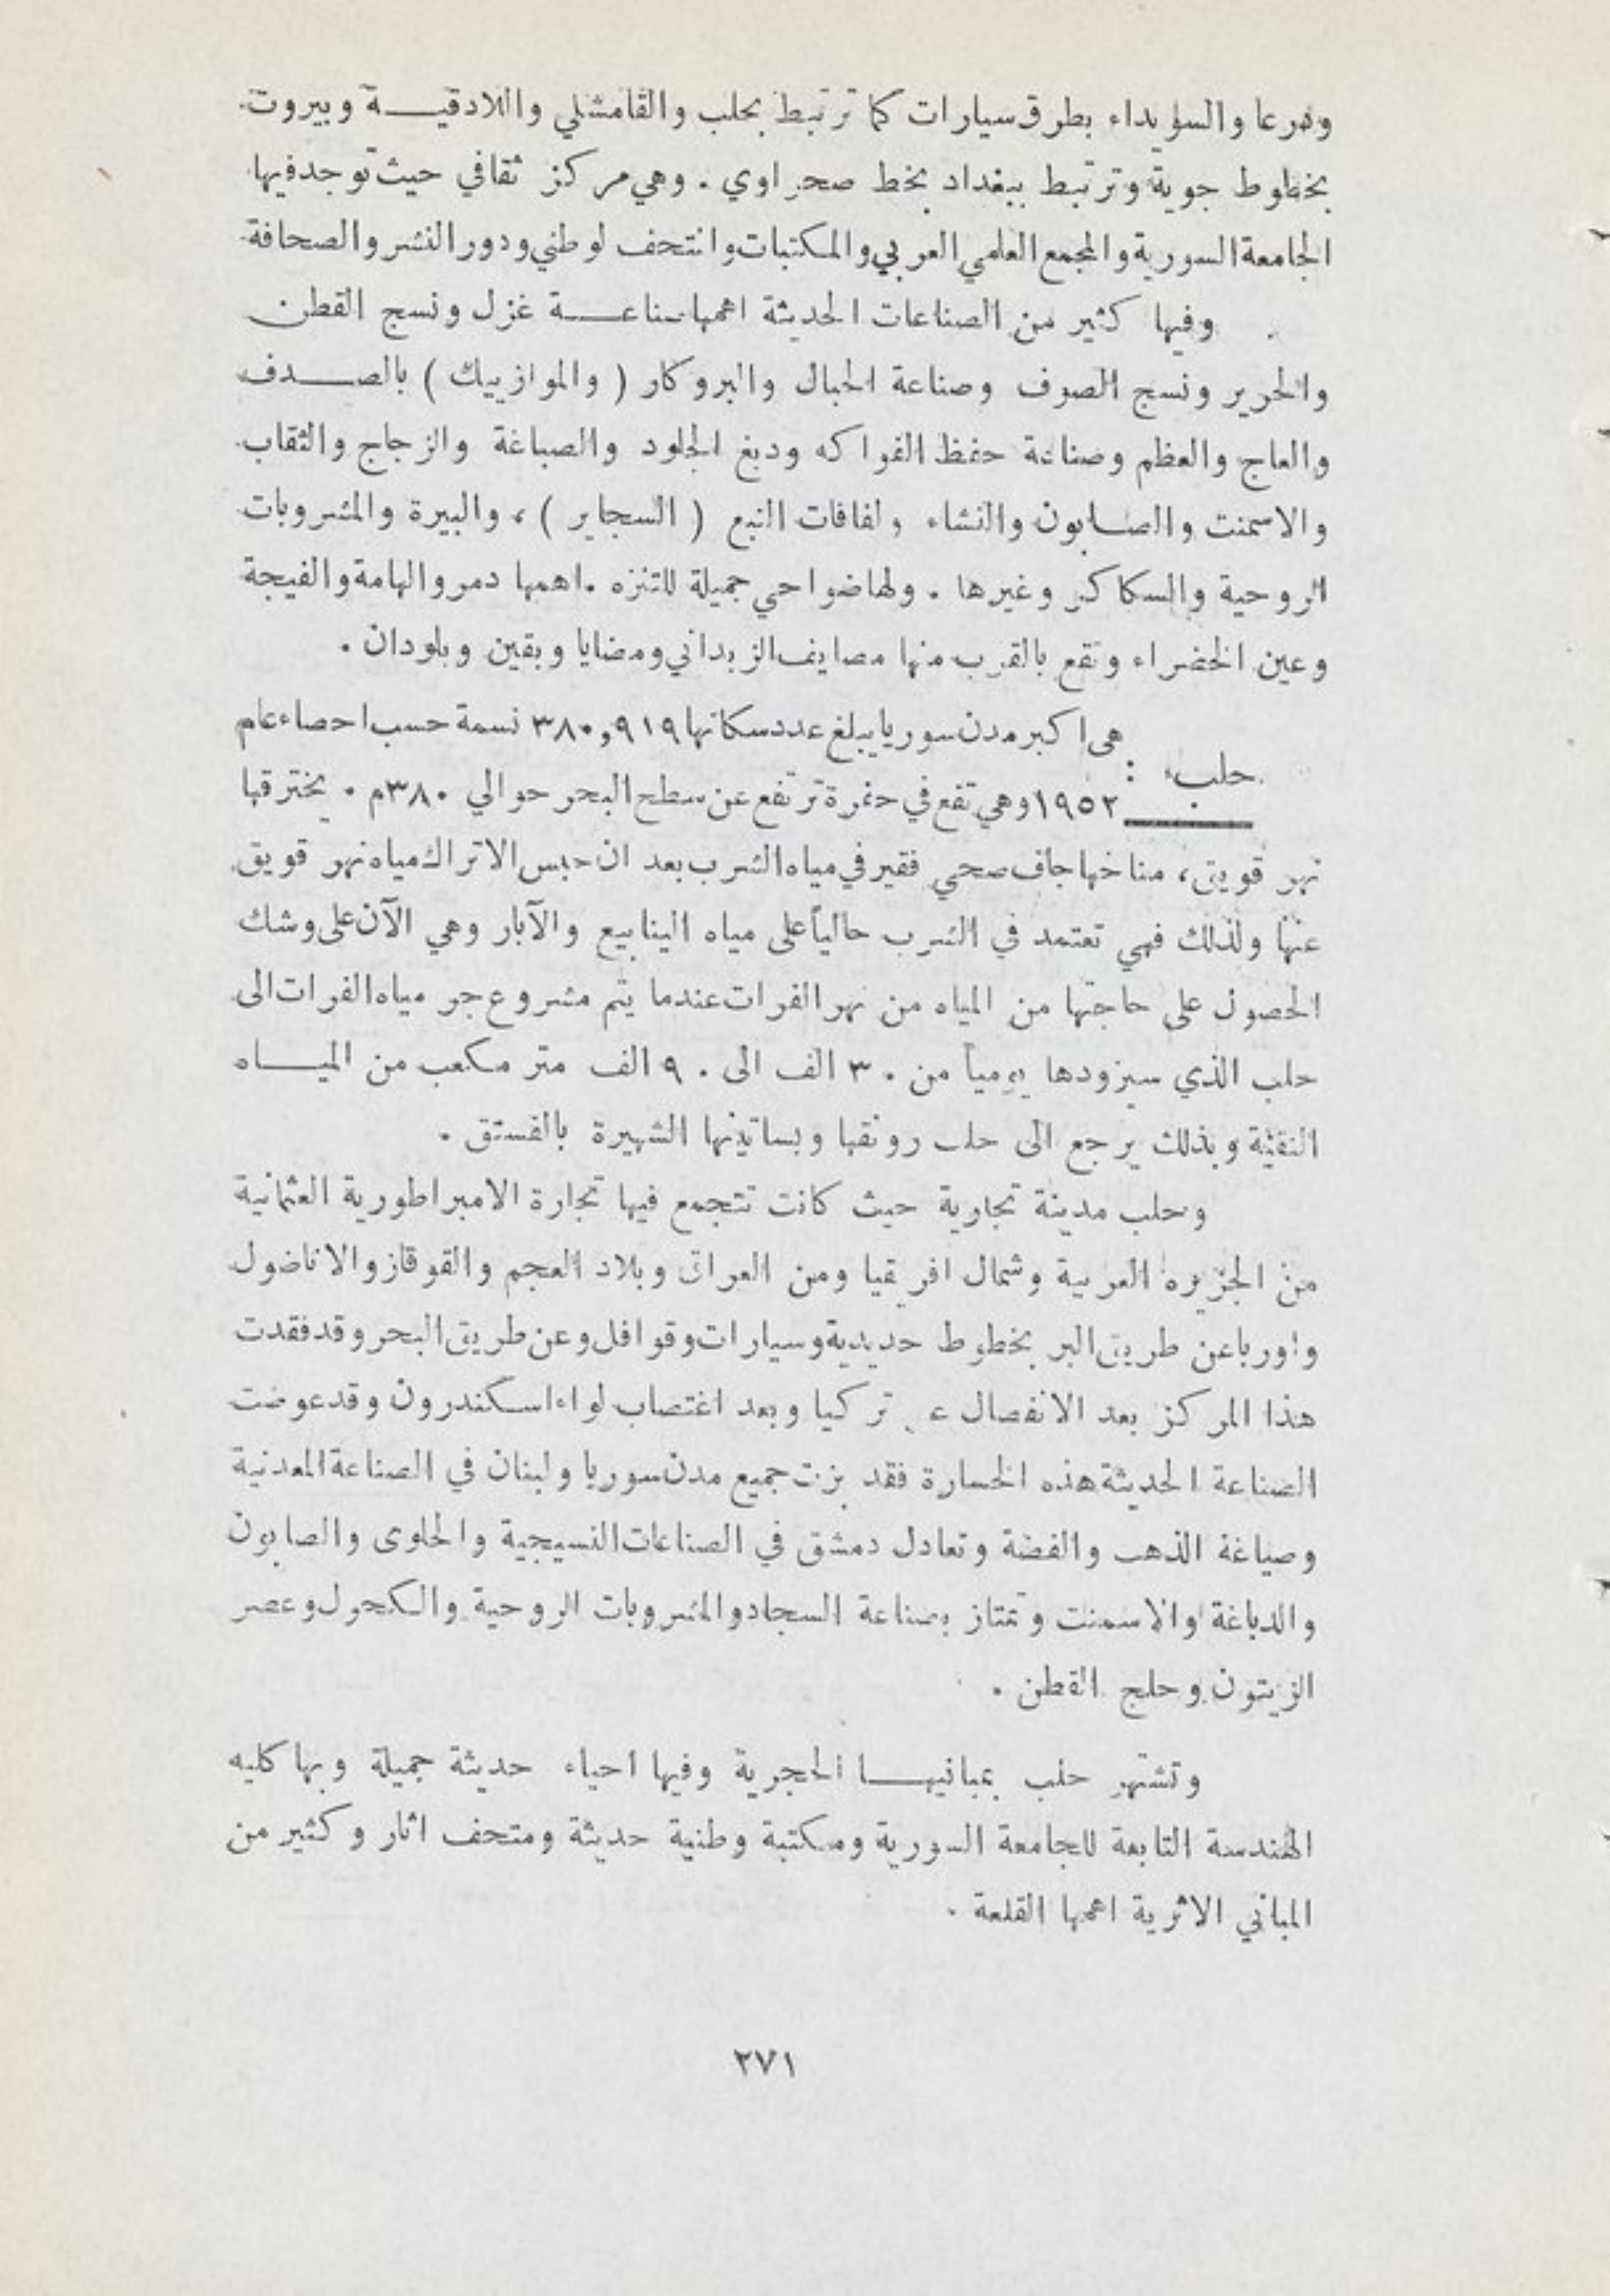 ودرعا والسويداء بطرق سيارات كما ترتبط بحلب والقامشلي واللادقيـــة وبيروت
بخطوط جوية وترتبط ببغداد بخط صحراوي . وهي مركز ثقافي حيث توجد فيها
الجامعة السورية والمجمع العلمي العربي والمكتبات وانتحف لوطني ودور النشر والصحافة
وفيها كثير من الصناعات الحديثة اهمها صناعـــة غزل ونسج القطن
والحرير ونسج الصوف وصناعة الحبال والبروكار ( والموازييك ) بالصـــدف
والعاج والعظم وصناعة حفظ الفواكه ودبغ الجلود والصباغة والزجاج والثقاب
والاسمنت والصـابون والنشاء ولفافات التبع ( السجاير ) ، والبيرة والمشروبات
الروحية والسكاكر وغيرها . ولها ضواحي جميلة للتنزه . اهمها دمر والهامة والفيجة
وعين الخضراء وتقع بالقرب منها مصايف الزبداني ومضايا وبقين وبلودان .
حلب : هي اكبر مدن سوريا يبلغ عدد سكانها ٣٨٠,٩١٩ نسمة حسب احصاء عام
١٩٥٢ وهي تقع في حفرة ترتفع عن سطح البحر حوالي ٣٨٠م . يخترقها
نهر قويق ، مناخها جاف صحي فقير في مياه الشرب بعد ان حبس الاتراك مياه نهر قويق
عنها ولذلك فهي تعتمد في الشرب حالياً على مياه الينابيع والآبار وهي الآن على وشك
الحصول على حاجتها من المياه من نهر الفرات عندما يتم مشروع جر مياه الفرات الى
حلب الذي سيزودها يومياً من ٣٠ الف الى ٩٠ الف متر مكعب من الميـــاه
النقية وبذلك يرجع الى حلب رونقها وبساتينها الشهيرة بالفستق .
وحلب مدينة تجارية حيث كانت تتجمع فيها تجارة الامبراطورية العثمانية
من الجزيره العربية وشمال افريقيا ومن العراق وبلاد العجم والقوقاز والاناضول
واوربا عن طريق البر بخطوط حديدية وسيارات وقوافل وعن طريق البحر وقد فقدت
هذا المركز بعد الانفصال تركيا وبعد اغتصاب لواء اسكندرون وقد عوضت
الصناعة الحديثة هذه الخسارة فقد بزت جميع مدن سوريا ولبنان في الصناعة المعدنية
وصياغة الذهب والفضة وتعادل دمشق في الصناعات النسيجية والحلوى والصابون
والدباغة والاسمنت وتمتاز بصناعة السجاد والمشروبات الروحية والكحول وعصر
الزيتون وحلج القطن .
وتشتهر حلب بمبانيهـــا الحجرية وفيها احياء حديثة جميلة وبها كليه
الهندسة التابعة للجامعة السورية ومكتبة وطنية حديثة ومتحف اثار وكثير من
المباني الاثرية اهمها القلعة .
٢٧١